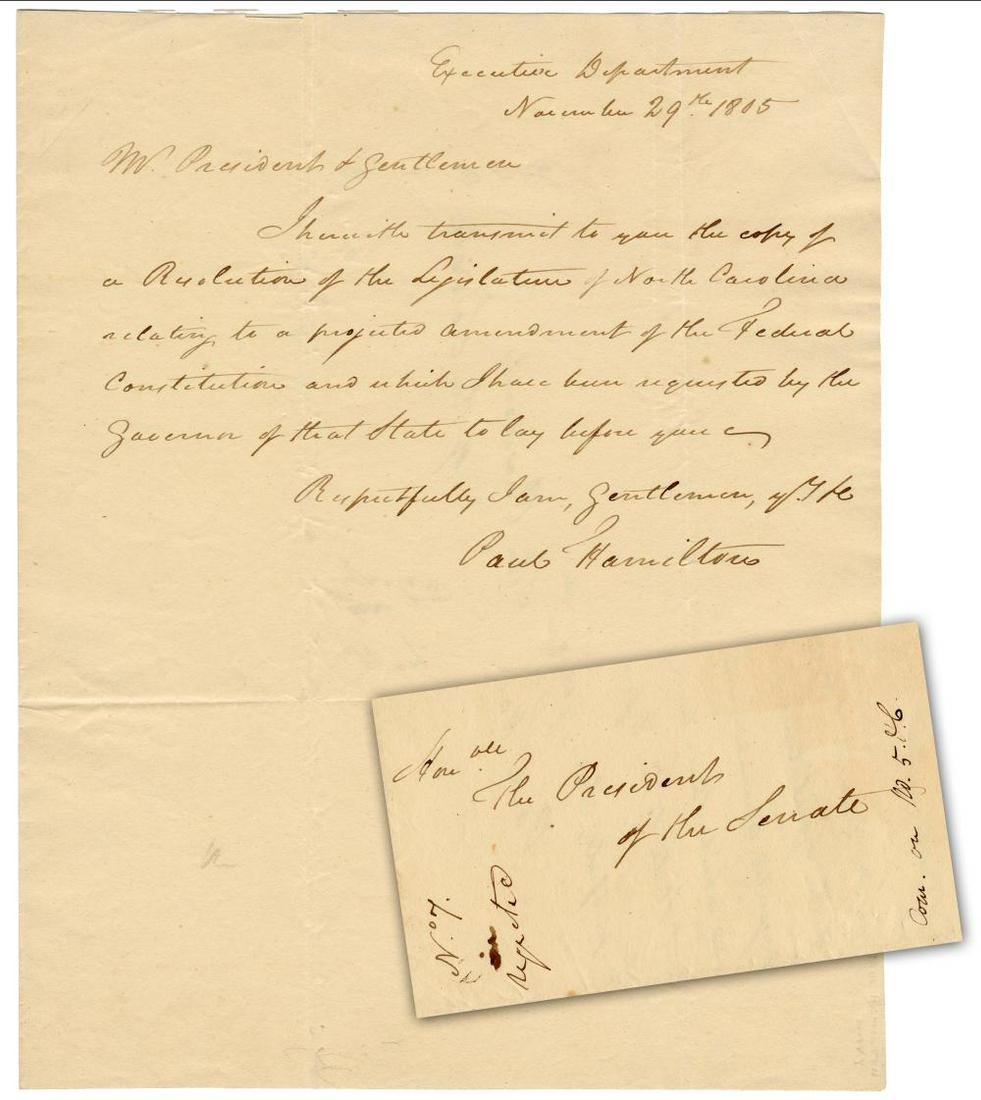 Executive Department
November 29th. 1805
Mr. President & Gentlemen
I herewith transmit to you the copy of
a Resolution of the Legislature of North Carolina
relating to a projected amendment of the Federal
Constitution and which I have been requested by the
Governor of that State to lay before you
Respectfully I am, Gentlemen, 
Paul Hamilton
Honble
The President
of the Senate
No. 7.
rejected
Com. on